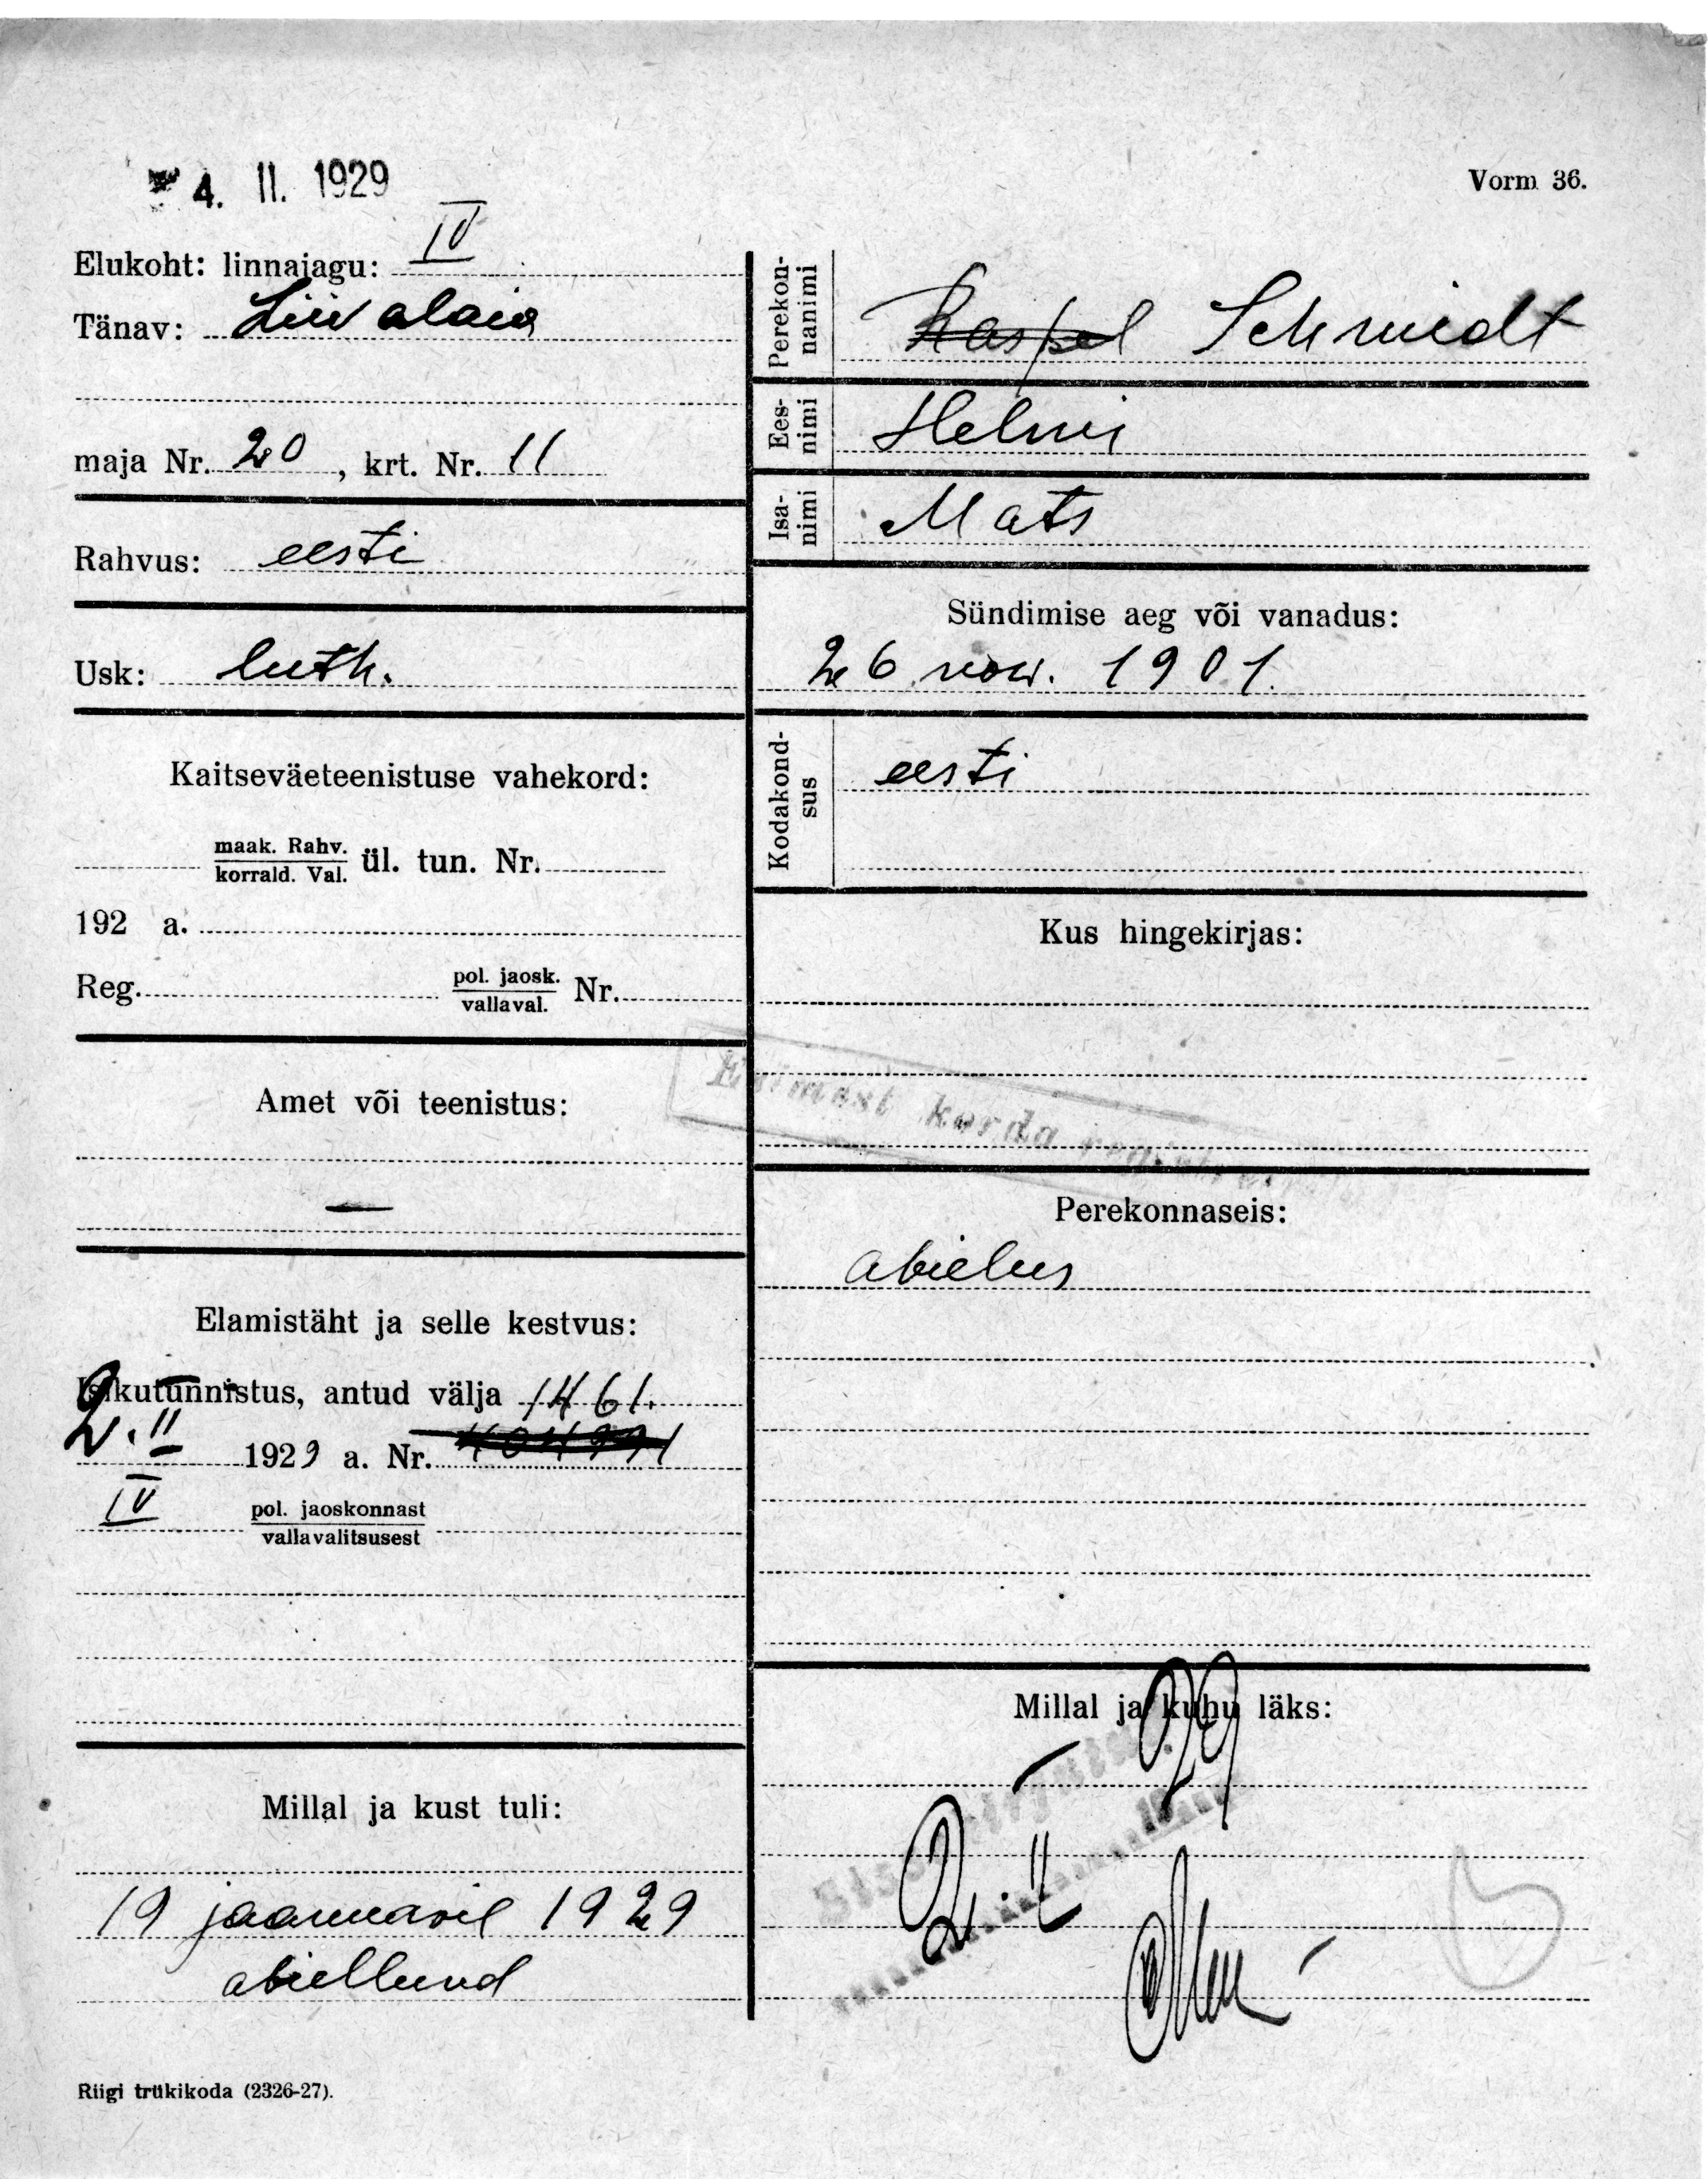 4. II. 1929
Vorm 36.
Elukoht: linnajagu: IV
Tänav: Liivalaia
maja Nr. 20, krt. Nr. 11
Rahvus: eesti
Usk: luth.
Kaitseväeteenistuse vahekord:
maak. Rahv.
korrald. Val. ül. tun. Nr.
192 a.
Reg. pol. jaosk.
vallaval. Nr.
Amet või teenistus:
—
Elamistäht ja selle kestvus:
Isikutunnistus, antud välja 1461.
2. II 1929 a. Nr.
IV pol. jaoskonnast
vallavalitsusest
Millal ja kust tuli:
19 jaanuaril 1929
abiellund
Riigi trükikoda (2326-27).
Perekon-
nanimi
Kaspel Schmidt
Ees-
nimi
Helmi
Isa-
nimi
Mats
Sündimise aeg või vanadus:
26 nov. 1901.
Kodakond-
sus
eesti
Kus hingekirjas:
Esimest korda
Perekonnaseis:
abielus
Millal ja kuhu läks:
2. II 29